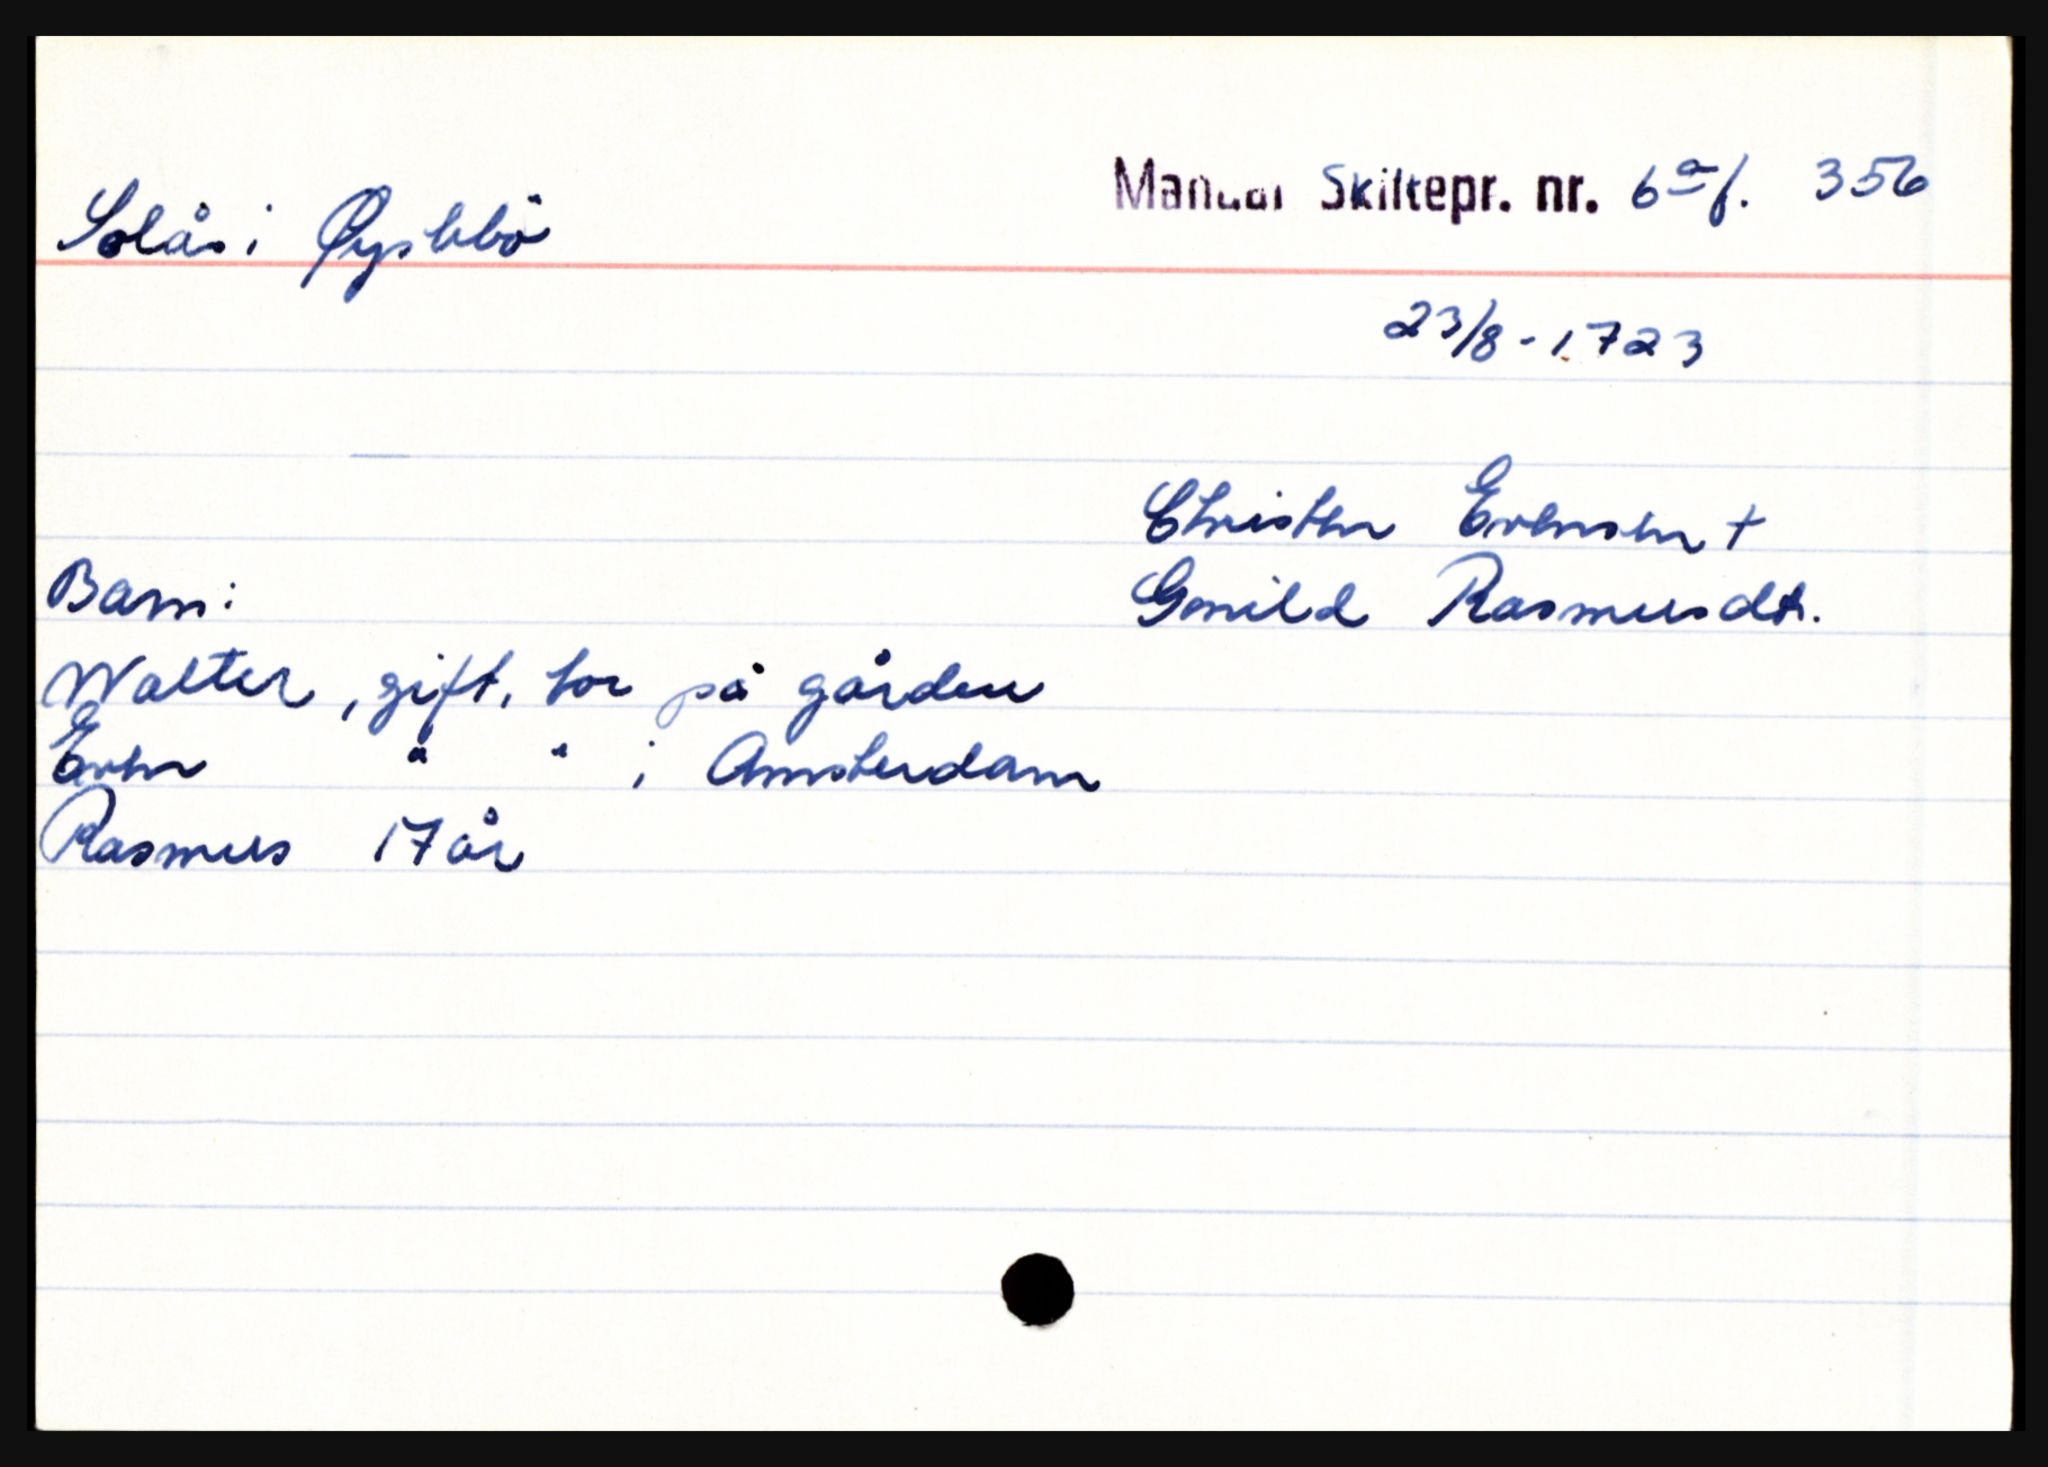 Mandal Skiftepr. nr. 6a f. 356
Solås i Øyslebö
23/8-1723
Christen Evensen +
Gonild Rasmusdt.
Barn:
Walter, gift, bor på gården
Even " " i Amsterdam
Rasmus 17 år